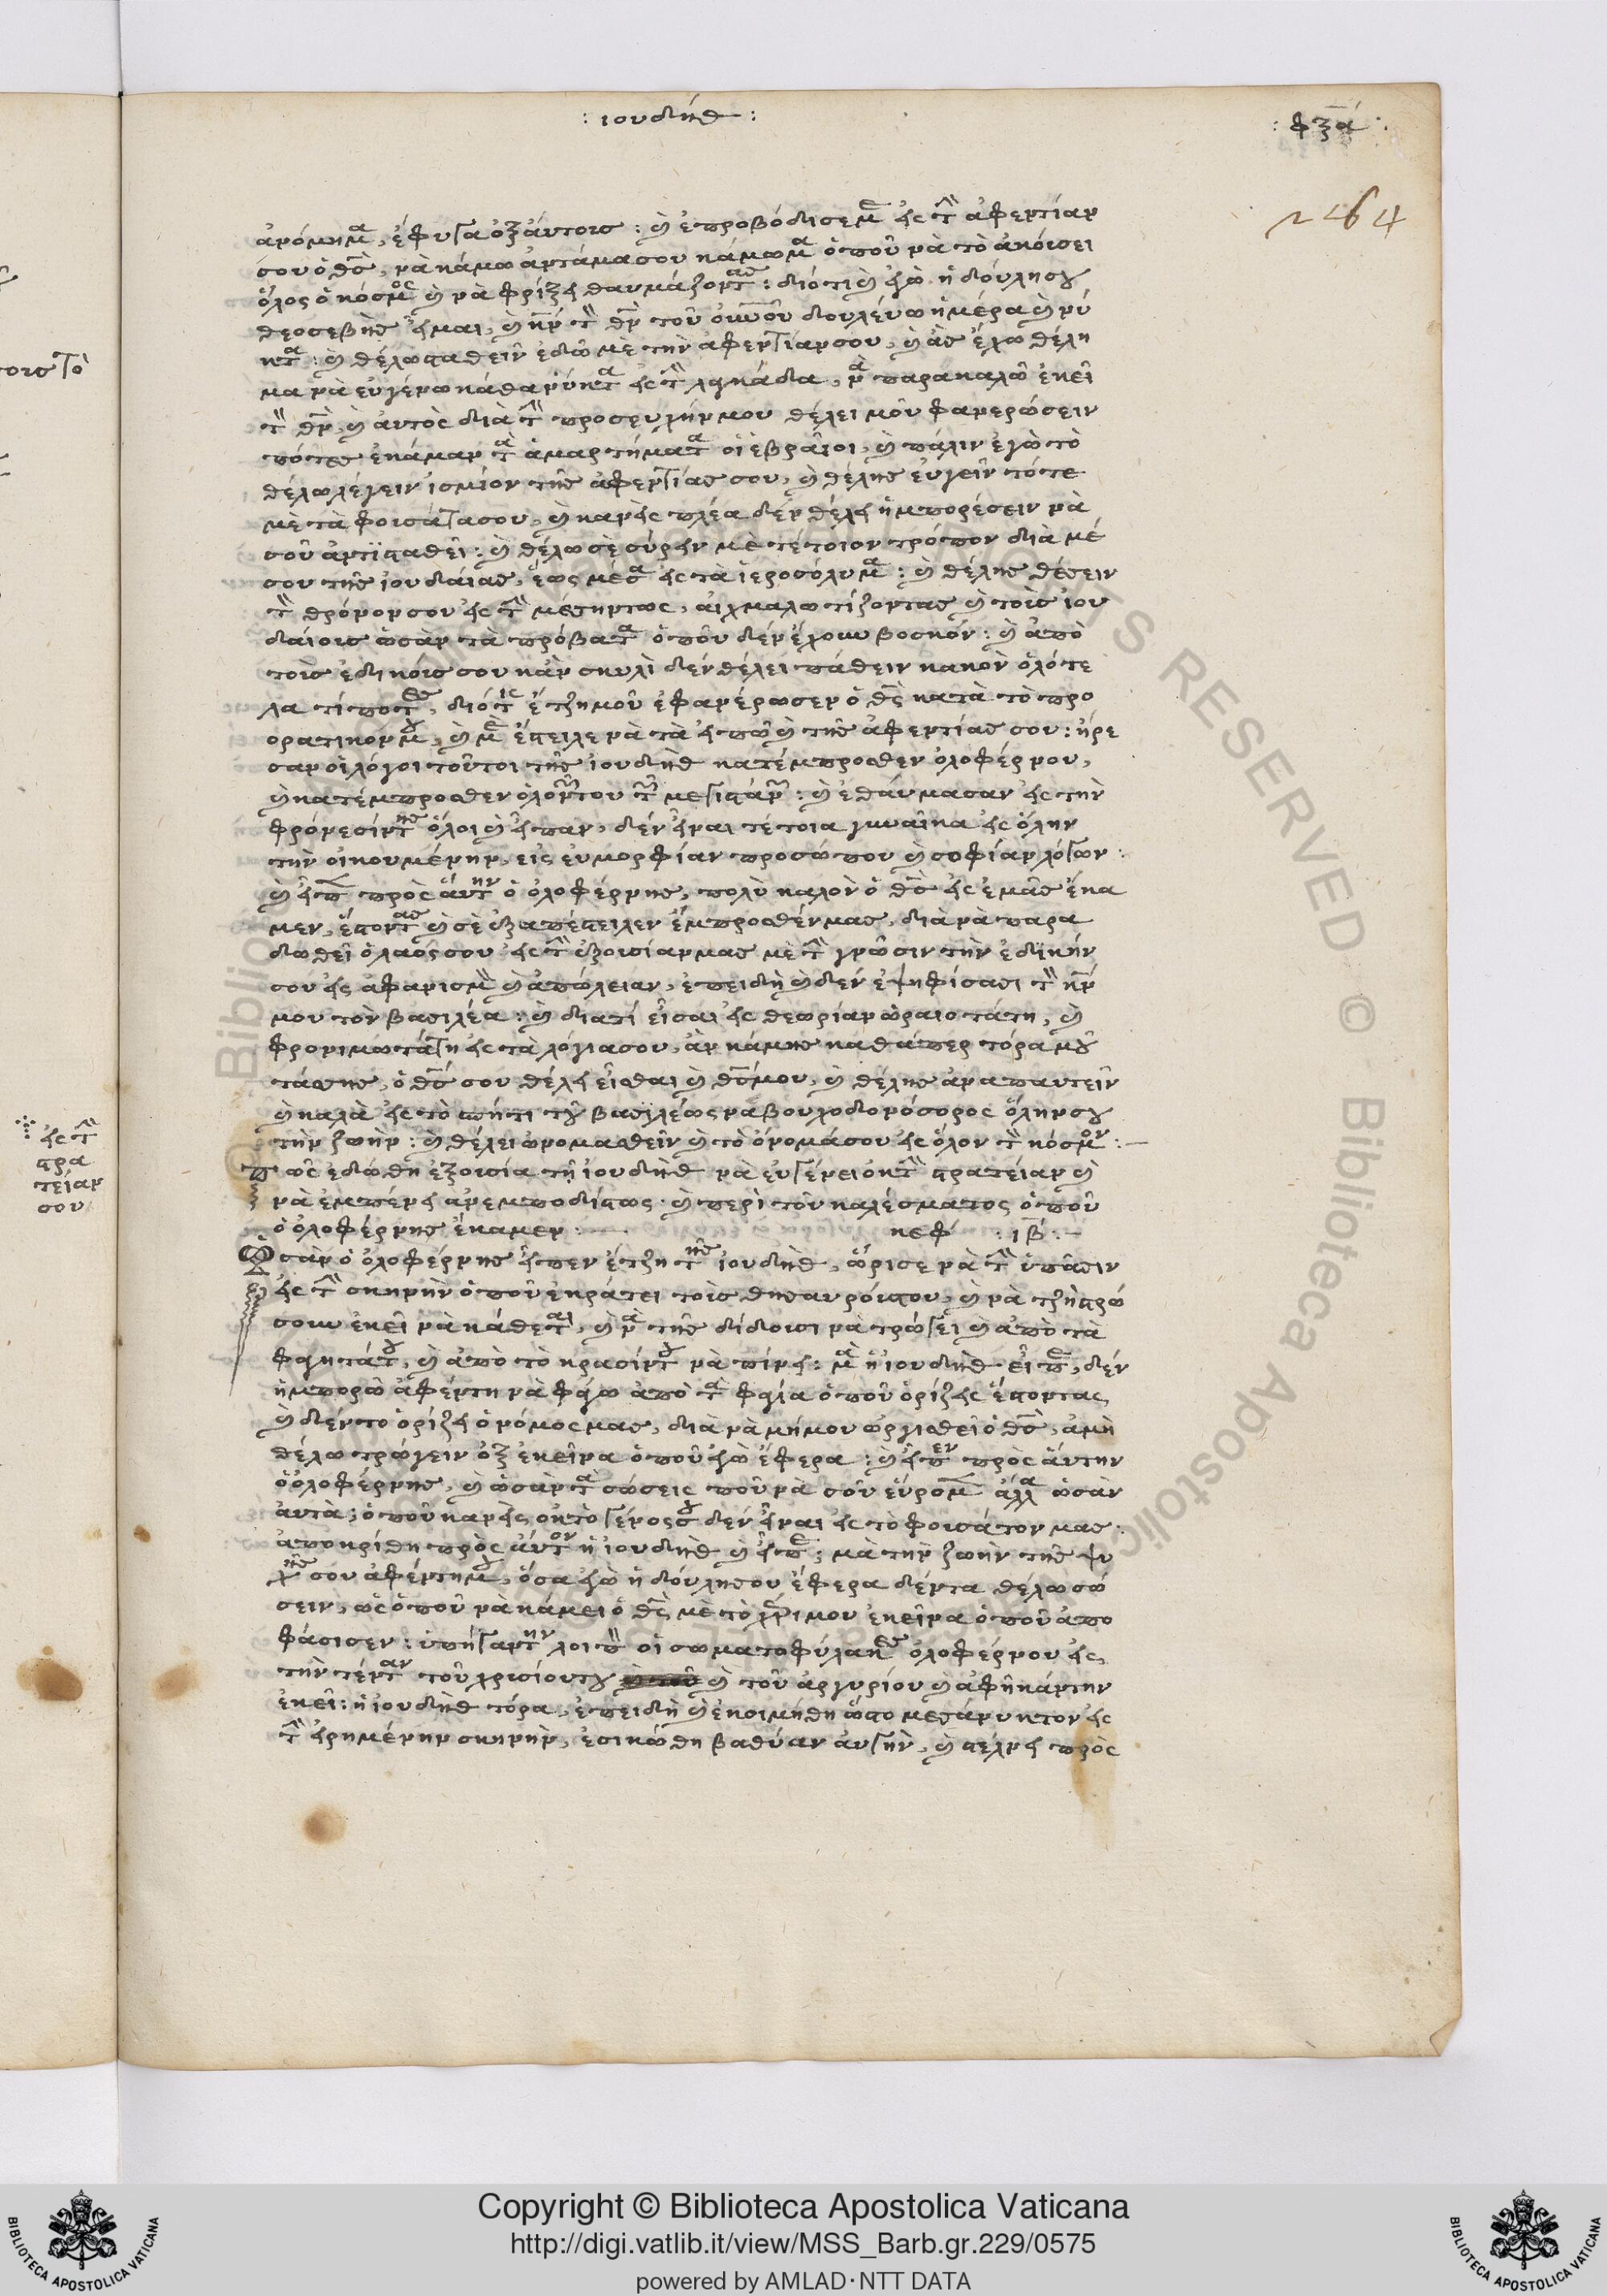 : ιουδήθ :
: φξά :
264
ἀνόμημα, ἔφυγα ὀξάυτους : καὶ ἐπροβόδισέ με εἰς τὴν ἀφεντίαν
σου ὁ θεὸς, νὰ κάμω ἀντάμα σου κάμωμα ὁποῦ νὰ τὸ ἀκούσει
ὅλος ὁ κόσμος καὶ νὰ φρίξει θαυμάζοντας : διότι καὶ ἐγὼ ἡ δούλη σου
θεοσεβὴς εἶμαι, καὶ τὸν θεὸν τοῦ οὐρανοῦ δουλέυω ἡμέρα καὶ νύ
κτα : καὶ θέλω σταθεῖν ἐδῶ μὲ τὴν ἀφεντίαν σου, καὶ ἂς ἔχω θέλη
μα νὰ ἐυγένω κάθα νύκτα εἰς τὴν λαγκάδα, νὰ παρακαλῶ ἐκεῖ
τὸν θεὸν, καὶ ἀυτὸς διὰ τὴν προσευχήν μου θέλει μοῦ φανερώσειν
πότες ἐκάμαν τὰ ἁμαρτήματα οἱ ἑβραῖοι, καὶ πάλιν ἐγὼ τὸ
θέλω λέγειν ἰσμίον τῆς ἀφεντίας σου, καὶ θέλης ἐυγεῖν τότε
μὲ τὰ φουσάτα σου, καὶ κανεὶς πλέα δὲν θέλει ἠμπορέσειν νὰ
σοῦ ἀντϊσταθεῖ : καὶ θέλω σὲ σύρειν μὲ τέτοιον τρόπον διὰ μέ
σου τῆς ἰουδαίας, ἕως μέσα εἰς τὰ ἱεροσόλυμα : καὶ θέλης θέσειν
τὸν θρόνον σου εἰς τὴν μέσην τως, ἀιχμαλωτίζοντας καὶ τοὺς ἰου
δαίους ὡσὰν τὰ πρόβατα ὁποῦ δὲν ἔχουν βοσκόν : καὶ ἀπὸ
τοὺς ἐδικούς σου κἂν σκυλὶ δὲν θέλει πάθειν κακὸν ὁλότε
λα τίποτες, διότις ἔτζη μοῦ ἐφανέρωσεν ὁ θεὸς κατὰ τὸ προ
ορατικόν μου, καὶ μὲ ἔστειλε νὰ τὰ εἰπῶ καὶ τῆς ἀφεντίας σου : ἤρε
σαν οἱ λόγοι τοῦτοι τῆς ἰουδὴθ κατέμπροσθεν ὀλοφέρνου,
καὶ κατέμπροσθεν ὁλονῶν του τῶν μεγιστάνων : καὶ ἐθάυμασαν εἰς τὴν
φρόνεσίν της ὅλοι καὶ εἶπαν, δὲν εἶναι τέτοια γυναῖκα εἰς ὅλην
τὴν οἰκουμένην, εἰς ἐυμορφίαν προσώπου καὶ σοφίαν λόγων :
καὶ εἶπε πρὸς ἀυτὴν ὁ ὀλοφέρνης, πολὺ καλὸν ὁ θεὸς εἰς ἐμᾶς ἔκα
μεν, ἔστοντας καὶ σὲ ἐξαπέστειλεν ἔμπροσθέν μας, διὰ νὰ παρα
δωθεῖ ὁ λαός σου εἰς τὴν ἐξουσίαν μας μὲ τὴν γνῶσιν τὴν ἐδικήν
σου εἰς ἀφανισμὸν καὶ ἀπώλειαν, ἐπειδὴ καὶ δὲν ἐψηφίσασι τὸν κύριον
μου τὸν βασιλέα : καὶ διατί εἶσαι εἰς θεωρίαν ὡραιοτάτη, καὶ
φρονιμωτάτη εἰς τὰ λόγιά σου, ἂν κάμης καθάπερ τόρα μοῦ
τάσσης, ὁ θεός σου θέλει εἶσθαι καὶ θεός μου, καὶ θέλης ἀναπαυτεῖν
καὶ καλὰ εἰς τὸ σπήτι τοῦ βασϊλέως ναβουχοδονόσορος ὅλην σου
τὴν ζωήν : καὶ θέλει ὠνομασθεῖν καὶ τὸ ὄνομά σου εἰς ὅλον τὸν κόσμον : —
Πῶς ἐδώθη ἐξουσία τῇ ἰουδὴθ νὰ ἐυγένει ὀκ τὴν στρατείαν καὶ
νὰ ἐμπένει ἀνεμποδίστως · καὶ περὶ τοῦ καλέσματος ὁποῦ
ὁ ὀλοφέρνης ἔκαμεν : — κεφ : ιβ : —
Ὡσὰν ὁ ὀλοφέρνης εἶπεν ἔτζη τῆς ἰουδὴθ, ὥρισε νὰ τὴν ὑπᾶσιν
εἰς τὴν σκηνὴν ὁποῦ ἐκράτει τοὺς θησαυρούς του, καὶ νὰ τζὴ στρώ
σουν ἐκεῖ νὰ κάθεται, καὶ νὰ τῆς δίδουσι νὰ τρώγει καὶ ἀπὸ τὰ
φαητά του, καὶ ἀπὸ τὸ κρασίν του νὰ πίνει : μὰ ἡ ἰουδὴθ εἶπε, δὲν
ἠμπορῶ ἀφέντη νὰ φάγω ἀπὸ τὰ φαγία ὁποῦ ὁρίζεις ἔστοντας
καὶ δὲν τὸ ὁρίζει ὁ νόμος μας, διὰ νὰ μή μου ὠργισθεῖ ὁ θεὸς, ἀμὴ
θέλω τρώγειν ὀξ ἐκεῖνα ὁποῦ ἐγὼ ἔφερα : καὶ εἶπεν πρὸς ἀυτὴν
ὁ ὀλοφέρνης, καὶ ὡσὰν τὰ σώσεις ποῦ νὰ σοῦ ἕυρομε ἄλλα ὡσὰν
ἀυτὰ ; ὁποῦ κανεὶς ὀκ τὸ γένος σου δὲν εἶναι εἰς τὸ φουσάτον μας :
ἀποκρίθη πρὸς ἀυτὸν ἡ ἰουδὴθ καὶ εἶπε ; μὰ τὴν ζωὴν τῆς ψυ
χῆς σου ἀφέντη μου, ὅσα ἐγὼ ἡ δούλη σου ἔφερα δὲν τα θέλω σώ
σειν, ὡς ὁποῦ νὰ κάμει ὁ θεὸς μὲ τὸ χέρι μου ἐκεῖνα ὁποῦ ἀπο
φάσισεν : ὑπῆγαν την λοιπὸν οἱ σωματοφύλακες ὀλοφέρνου εἰς
τὴν τένταν τοῦ χρισίου του καὶ τοῦ ἀργυρίου καὶ ἀφῆκάν την
ἐκεῖ : ἡ ἰουδὴθ τόρα, ἐπειδὴ καὶ ἐκοιμήθη ὥστο μεσάνυκτον εἰς
τὴν εἰρημένην σκηνὴν, ἐσικώθη βαθύαν ἀυγὴν, καὶ στέλνει πρὸς
εἰς τὴν
στρα
τείαν
σου